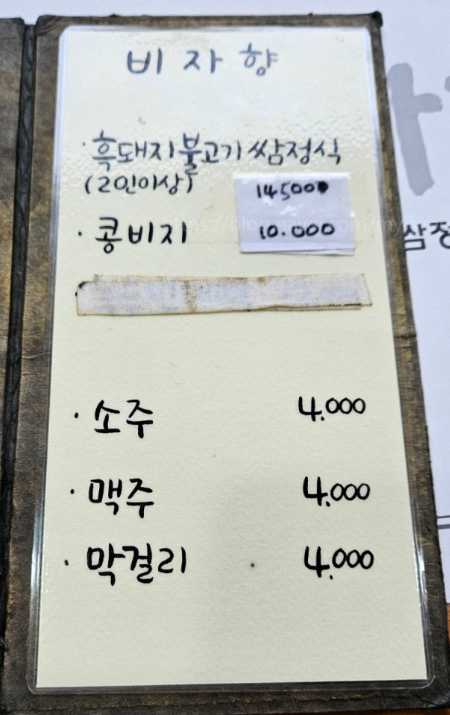 비자향
· 흑돼지불고기쌈정식
(2인이상) 14500
· 콩비지 10.000
· 소주 4.000
· 맥주 4.000
· 막걸리 4.000
쌈정